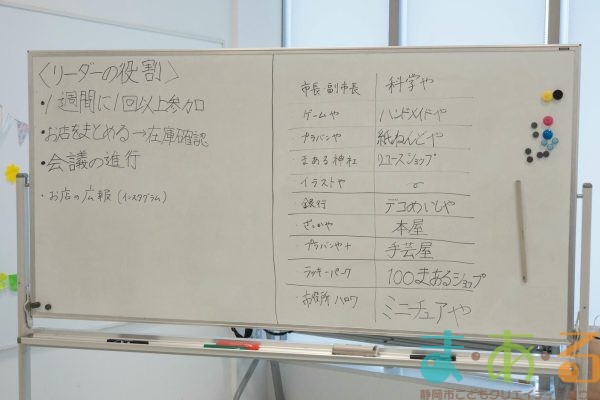 〈リーダーの役割〉
・1週間に1回以上参加
・お店をまとめる→在庫確認
・会議の進行
・お店の広報(インスタグラム)
市長・副市長 科学や
ゲームや ハンドメイドや
プラバンや 紙ねんどや
まある神社 リユースショップ
イラストや
・銀行 デコめいしや
・ざっかや 本屋
・プラバンや+ 手芸屋
・ラッキーパーク 100まあるショップ
・お役所ハロワ ミニチュアや
ま・あ・る
静岡市こどもクリエイティブタウン